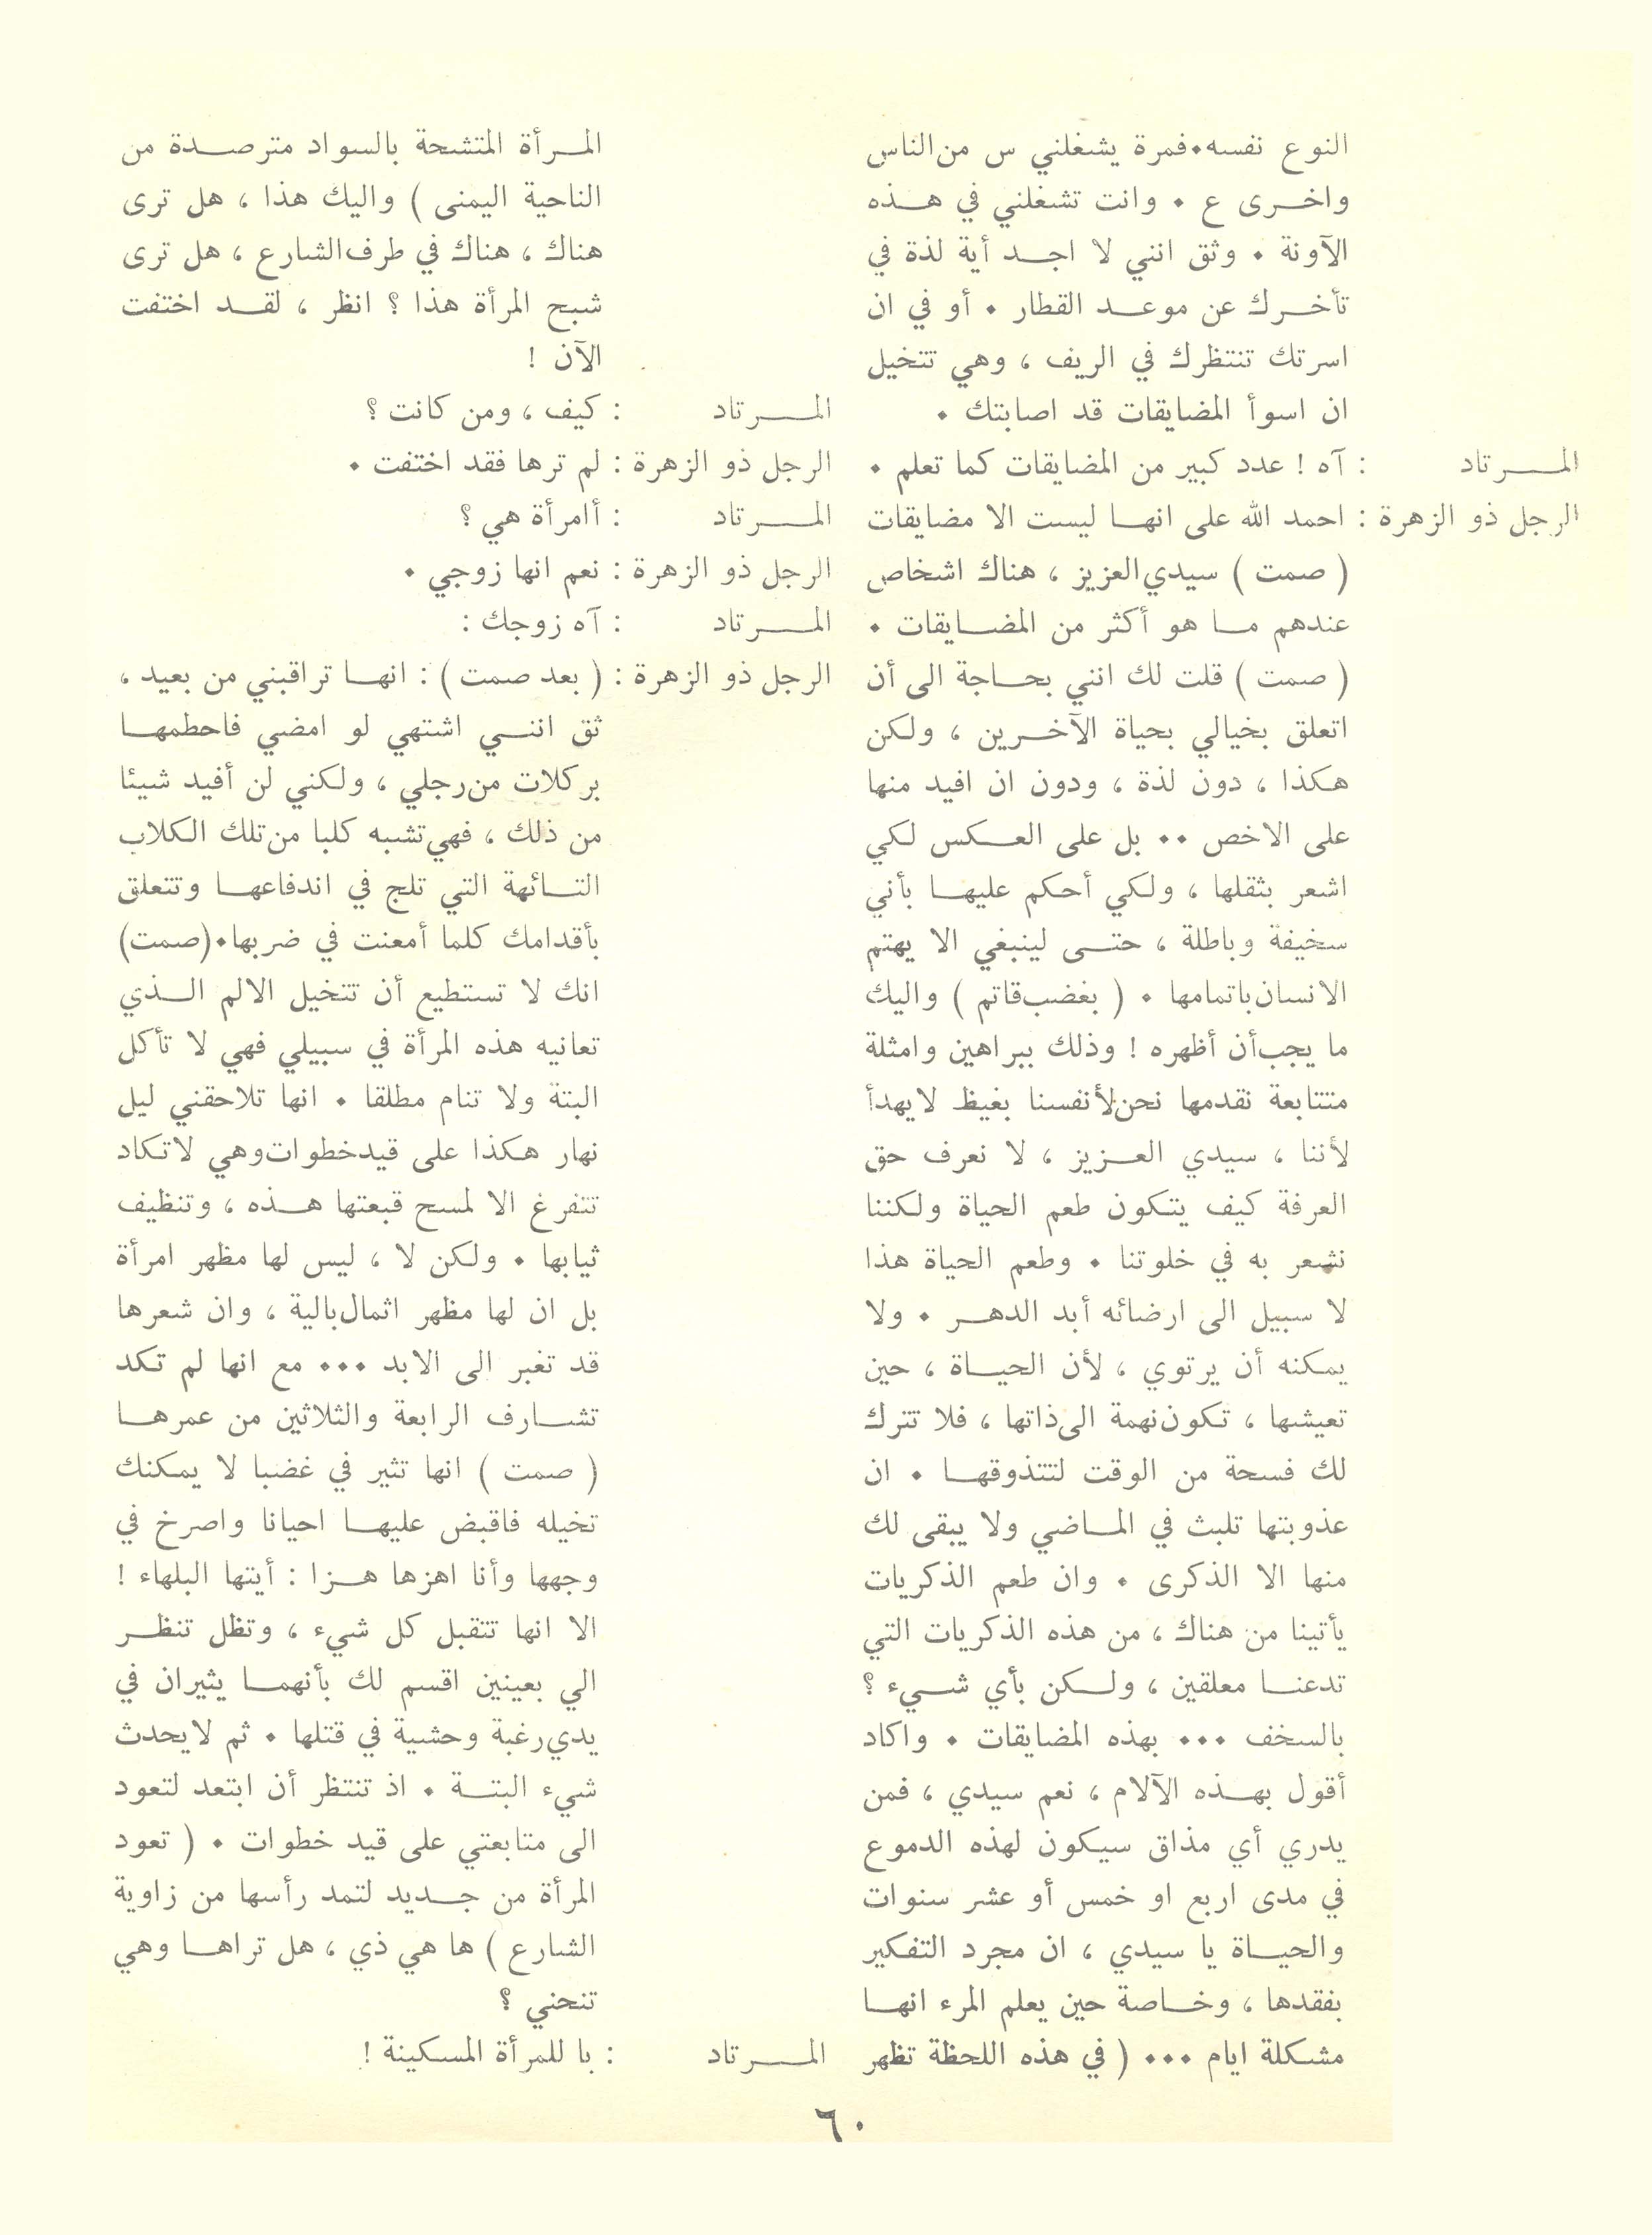 النوع نفسه٠فمرة يشغلني س من الناس
واخرى ع ٠ وانت تشغلني في هذه
الآونة ٠ وثق انني لا اجد أية لذة في
تأخرك عن موعد القطار ٠ أو في ان
اسرتك تنتظرك في الريف ، وهي تتخيل
ان اسوأ المضايقات قد اصابتك ٠
المرتاد : آه ! عدد كبير من المضايقات كما تعلم ٠
الرجل ذو الزهرة : احمد الله على انها ليست الا مضايقات
( صمت ) سيدي العزيز ، هناك اشخاص
عندهم ما هو أكثر من المضايقات ٠
( صمت ) قلت لك انني بحاجة الى أن
اتعلق بخيالي بحياة الآخرين ، ولكن
هكذا ، دون لذة ، ودون ان افيد منها
على الاخص ٠٠ بل على العكس لكي
اشعر بثقلها ، ولكي أحكم عليها بأني
سخيفة وباطلة ، حتى لينبغي الا يهتم
الانسان باتمامها ٠ ( بغضب قاتم ) واليك
ما يجب أن أظهره ! وذلك ببراهين وامثلة
متتابعة نقدمها نحن لأنفسنا بغيظ لا يهدأ
لأننا ، سيدي العزيز ، لا نعرف حق
العرفة كيف يتكون طعم الحياة ولكننا
نشعر به في خلوتنا ٠ وطعم الحياة هذا
لا سبيل الى ارضائه أبد الدهر ٠ ولا
يمكنه أن يرتوي ، لأن الحياة ، حين
تعيشها ، تكون نهمة الى ذاتها ، فلا تترك
لك فسحة من الوقت لتتذوقها ٠ ان
عذوبتها تلبث في الماضي ولا يبقى لك
منها الا الذكرى ٠ وان طعم الذكريات
يأتينا من هناك ، من هذه الذكريات التي
تدعنا معلقين ، ولكن بأي شيء ؟
بالسخف ٠٠٠ بهذه المضايقات ٠ واكاد
أقول بهذه الآلام ، نعم سيدي ، فمن
يدري أي مذاق سيكون لهذه الدموع
في مدى اربع او خمس أو عشر سنوات
والحياة يا سيدي ، ان مجرد التفكير
بفقدها ، وخاصة حين يعلم المرء انها
مشكلة ايام ٠٠٠ ( في هذه اللحظة تظهر
المرأة المتشحة بالسواد مترصدة من
الناحية اليمنى ) واليك هذا ، هل ترى
هناك ، هناك في طرف الشارع ، هل ترى
شبح المرأة هذا ؟ انظر ، لقد اختفت
الآن !
المرتاد : كيف ، ومن كانت ؟
الرجل ذو الزهرة : لم ترها فقد اختفت ٠
المرتاد : أامرأة هي ؟
الرجل ذو الزهرة : نعم انها زوجي ٠
المرتاد : آه زوجك :
الرجل ذو الزهرة : ( بعد صمت ) : انها تراقبني من بعيد ،
ثق انني اشتهي لو امضي فاحطمها
بركلات من رجلي ، ولكني لن أفيد شيئا
من ذلك ، فهي تشبه كلبا من تلك الكلاب
التائهة التي تلج في اندفاعها وتتعلق
بأقدامك كلما أمعنت في ضربها٠(صمت)
انك لا تستطيع أن تتخيل الالم الذي
تعانيه هذه المرأة في سبيلي فهي لا تأكل
البتة ولا تنام مطلقا ٠ انها تلاحقني ليل
نهار هكذا على قيد خطوات وهي لا تكاد
تتفرغ الا لمسح قبعتها هذه ، وتنظيف
ثيابها ٠ ولكن لا ، ليس لها مظهر امرأة
بل ان لها مظهر اثمال بالية ، وان شعرها
قد تغبر الى الابد ٠٠٠ مع انها لم تكد
تشارف الرابعة والثلاثين من عمرها
( صمت ) انها تثير في غضبا لا يمكنك
تخيله فاقبض عليها احيانا واصرخ في
وجهها وأنا اهزها هزا : أيتها البلهاء !
الا انها تتقبل كل شيء ، وتظل تنظر
الي بعينين اقسم لك بأنهما يثيران في
يدي رغبة وحشية في قتلها ٠ ثم لا يحدث
شيء البتة ٠ اذ تنتظر أن ابتعد لتعود
الى متابعتي على قيد خطوات ٠ ( تعود
المرأة من جديد لتمد رأسها من زاوية
الشارع ) ها هي ذي ، هل تراها وهي
تنحني ؟
المرتاد : با للمرأة المسكينة !
٦٠